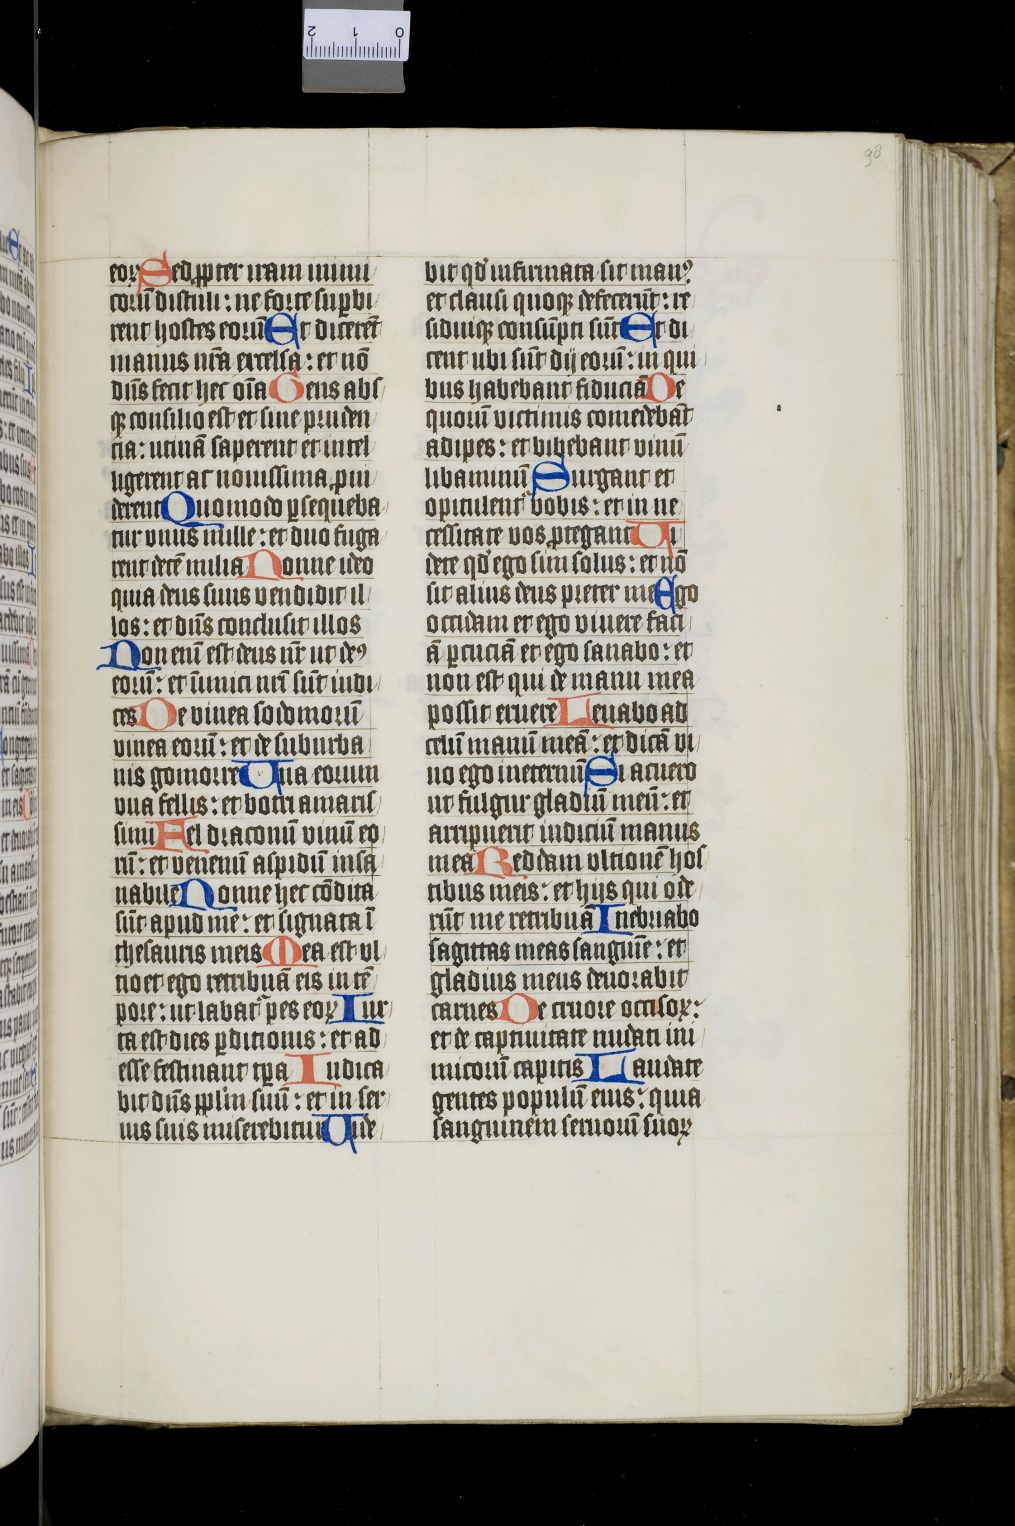 98
eoꝝ Sed ꝓpter iram inimi
corū distuli: ne forte suꝑbi
rent hostes eorū Et dicerēt
manus nr̄a excelsa: et nō
dn̄s fecit hec oīa Gens abs
qꝫ consilio est et sine pruden
cia: utinā saperent et intel
ligerent ac nouissima ꝓui
derent Quomodo ꝑsequeba
tur vnus mille: et duo fuga
rent decē milia Nonne ideo
quia deus suus vendidit il
los: et dn̄s conclusit illos
Non enī est deus nr̄ ut deꝰ
eorū: et inimici nr̄i sūt iudi
ces De vinea sodomorū
vinea eorū: et de suburba
nis gomorre Uua eorum
vua fellis: et botri amaris
simi Fel draconū vinū eo
rū: et venenū aspidū insa
nabile Nonne hec cōdita
sūt apud me: et signata ī
thesauris meis Mea est vl
tio et ego retribuā eis in tē
pore: ut labat᷑ pes eoꝝ Iux
ta est dies ꝑditionis: et ad
esse festinant tp̄a Iudica
bit dn̄s pp̄lm suū: et in ser
uis suis miserebitur Uide
bit qd̓ infirmata sit manꝰ
et clausi quoqꝫ defecerūt: re
siduiqꝫ consūpti sūt Et di
cent ubi sūt dij eorū: in qui
bus habebant fiduciā De
quorū victimis comedebāt
adipes: et bibebant vinū
libaminū Surgant et
opitulent᷑ vobis: et in ne
cessitate vos ꝓtegant Ui
dete qd̓ ego sim solus: et nō
sit alius deus preter me Ego
occidam et ego viuere faci
ā ꝑcuciā et ego sanabo: et
non est qui de manu mea
possit eruere Leuabo ad
celū manū meā: et dicā vi
uo ego ineternū Si acuero
ut fulgur gladiū meū: et
arripuerit iudiciū manus
mea Reddam vltionē hos
tibus meis: et hijs qui ode
rūt me retribuā Inebriabo
sagittas meas sanguīe: et
gladius meus deuorabit
carnes De cruore occisoꝝ:
et de captiuitate nudati ini
micorū capitis Laudate
gentes populū eius: quia
sanguinem seruorū suoꝝ
2 1 0